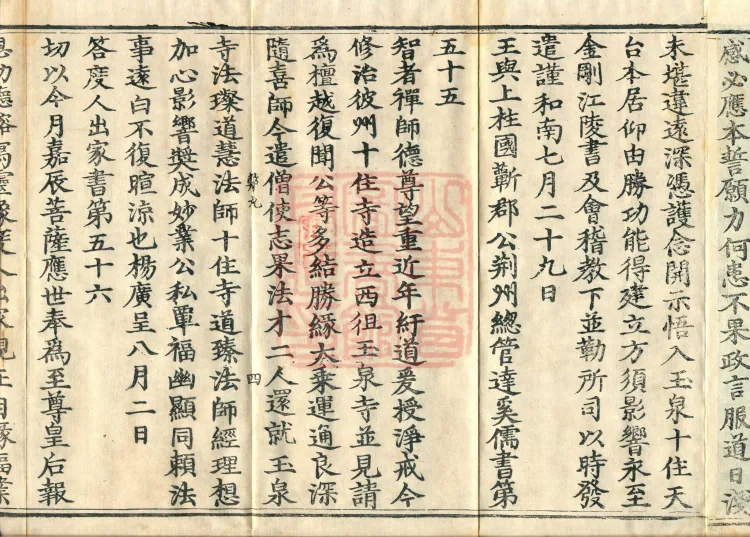 感必應本誓願力何患不果政言服道日淺
未堪違遠深憑護念開示悟入玉泉十住天
台本居仰由勝功能得建立方須影響永至
金剛江陵書及會稽教下並勒所司以時發
遣謹和南七月二十九日
王與上柱國蘄郡公荊州總管達奚儒書第
五十五
智者禪師德尊望重近年紆道爰授淨戒今
修治彼州十住寺造立西徂玉泉寺並見請
為檀越復聞公等多結勝緣大乘運通良深
隨喜師今遣僧使志果法才二人還就玉泉
四
寺法璨道慧法師十住寺道臻法師經理想
加心影響奬成妙業公私覃福幽顯同頼法
事遠白不復暄涼也楊廣呈八月二日
答度人出家書第五十六
切以今月嘉辰菩薩應世奉為至尊皇后報